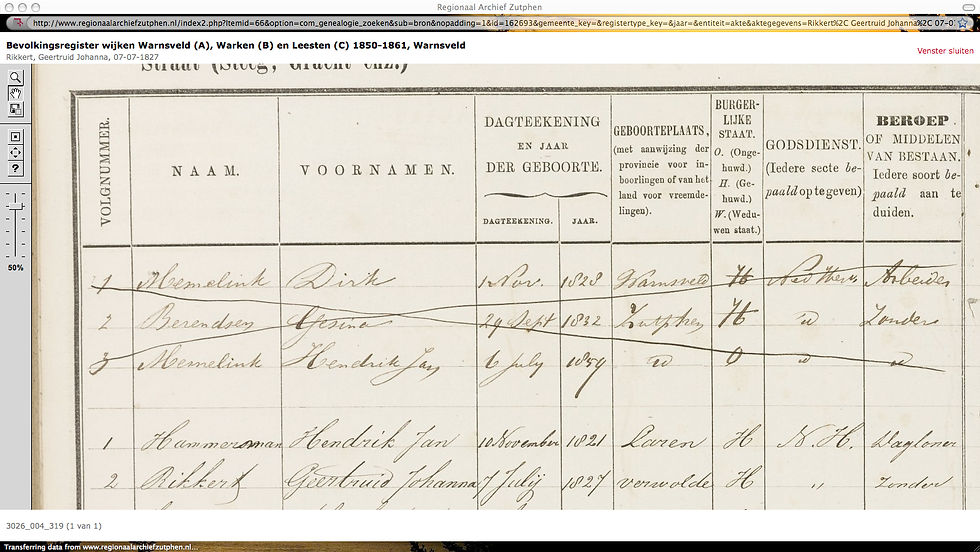 Regionaal Archief Zutphen
http://www.regionaalarchiefzutphen.nl/index2.php?Itemid=66&option=com_genealogie_zoeken&sub=bron&nopadding=1&id=162693&gemeente_key=&registertype_key=&jaar=&entiteit=akte&aktegegevens=Rikkert%2C Geertruid Johanna%2C 07-0
Bevolkingsregister wijken Warnsveld (A), Warken (B) en Leesten (C) 1850-1861, Warnsveld
Rikkert, Geertruid Johanna, 07-07-1827
Venster sluiten
Straat (Steeg, Gracht enz.)
VOLGNUMMER.
NAAM.
VOORNAMEN.
DAGTEEKENING
EN JAAR
DER GEBOORTE.
DAGTEEKENING.
JAAR.
GEBOORTEPLAATS,
(met aanwijzing der
provincie voor in-
boorlingen of van het
land voor vreemde-
lingen).
BURGER-
LIJKE
STAAT.
O. (Onge-
huwd.)
H. (Ge-
huwd.)
W. (Wedu-
wen staat.)
GODSDIENST.
(Iedere secte be-
paald op te geven)
BEROEP
OF MIDDELEN
VAN BESTAAN.
Iedere soort be-
paald aan te
duiden.
1 Memelink Dirk 1 Nov. 1828 Warnsveld H Ned Herv Arbeider
2 Berendsen Gesina 29 Sept 1832 Zutphen H id Zonder
3 Memelink Hendrik Jan 6 July 1859 id O id id
1 Hammerman Hendrik Jan 10 November 1821 Laren H N. H. Dagloner
2 Rikkert Geertruid Johanna 7 Julij 1827 verwolde H ,, zonder
50%
3026_004_319 (1 van 1)
Transferring data from www.regionaalarchiefzutphen.nl...